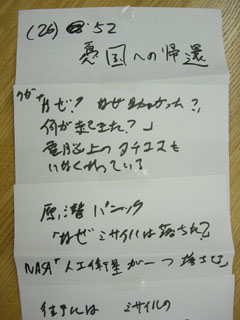 (26) 52
憂国への帰還
クゼ「なぜ? なぜ助かった?,
何が起きた?」
電脳上のタチコマも
いなくなっている
原潜 パニック
「なぜ ミサイルは落ちた?
NASA「人工衛星が一つ
には ミサイルの